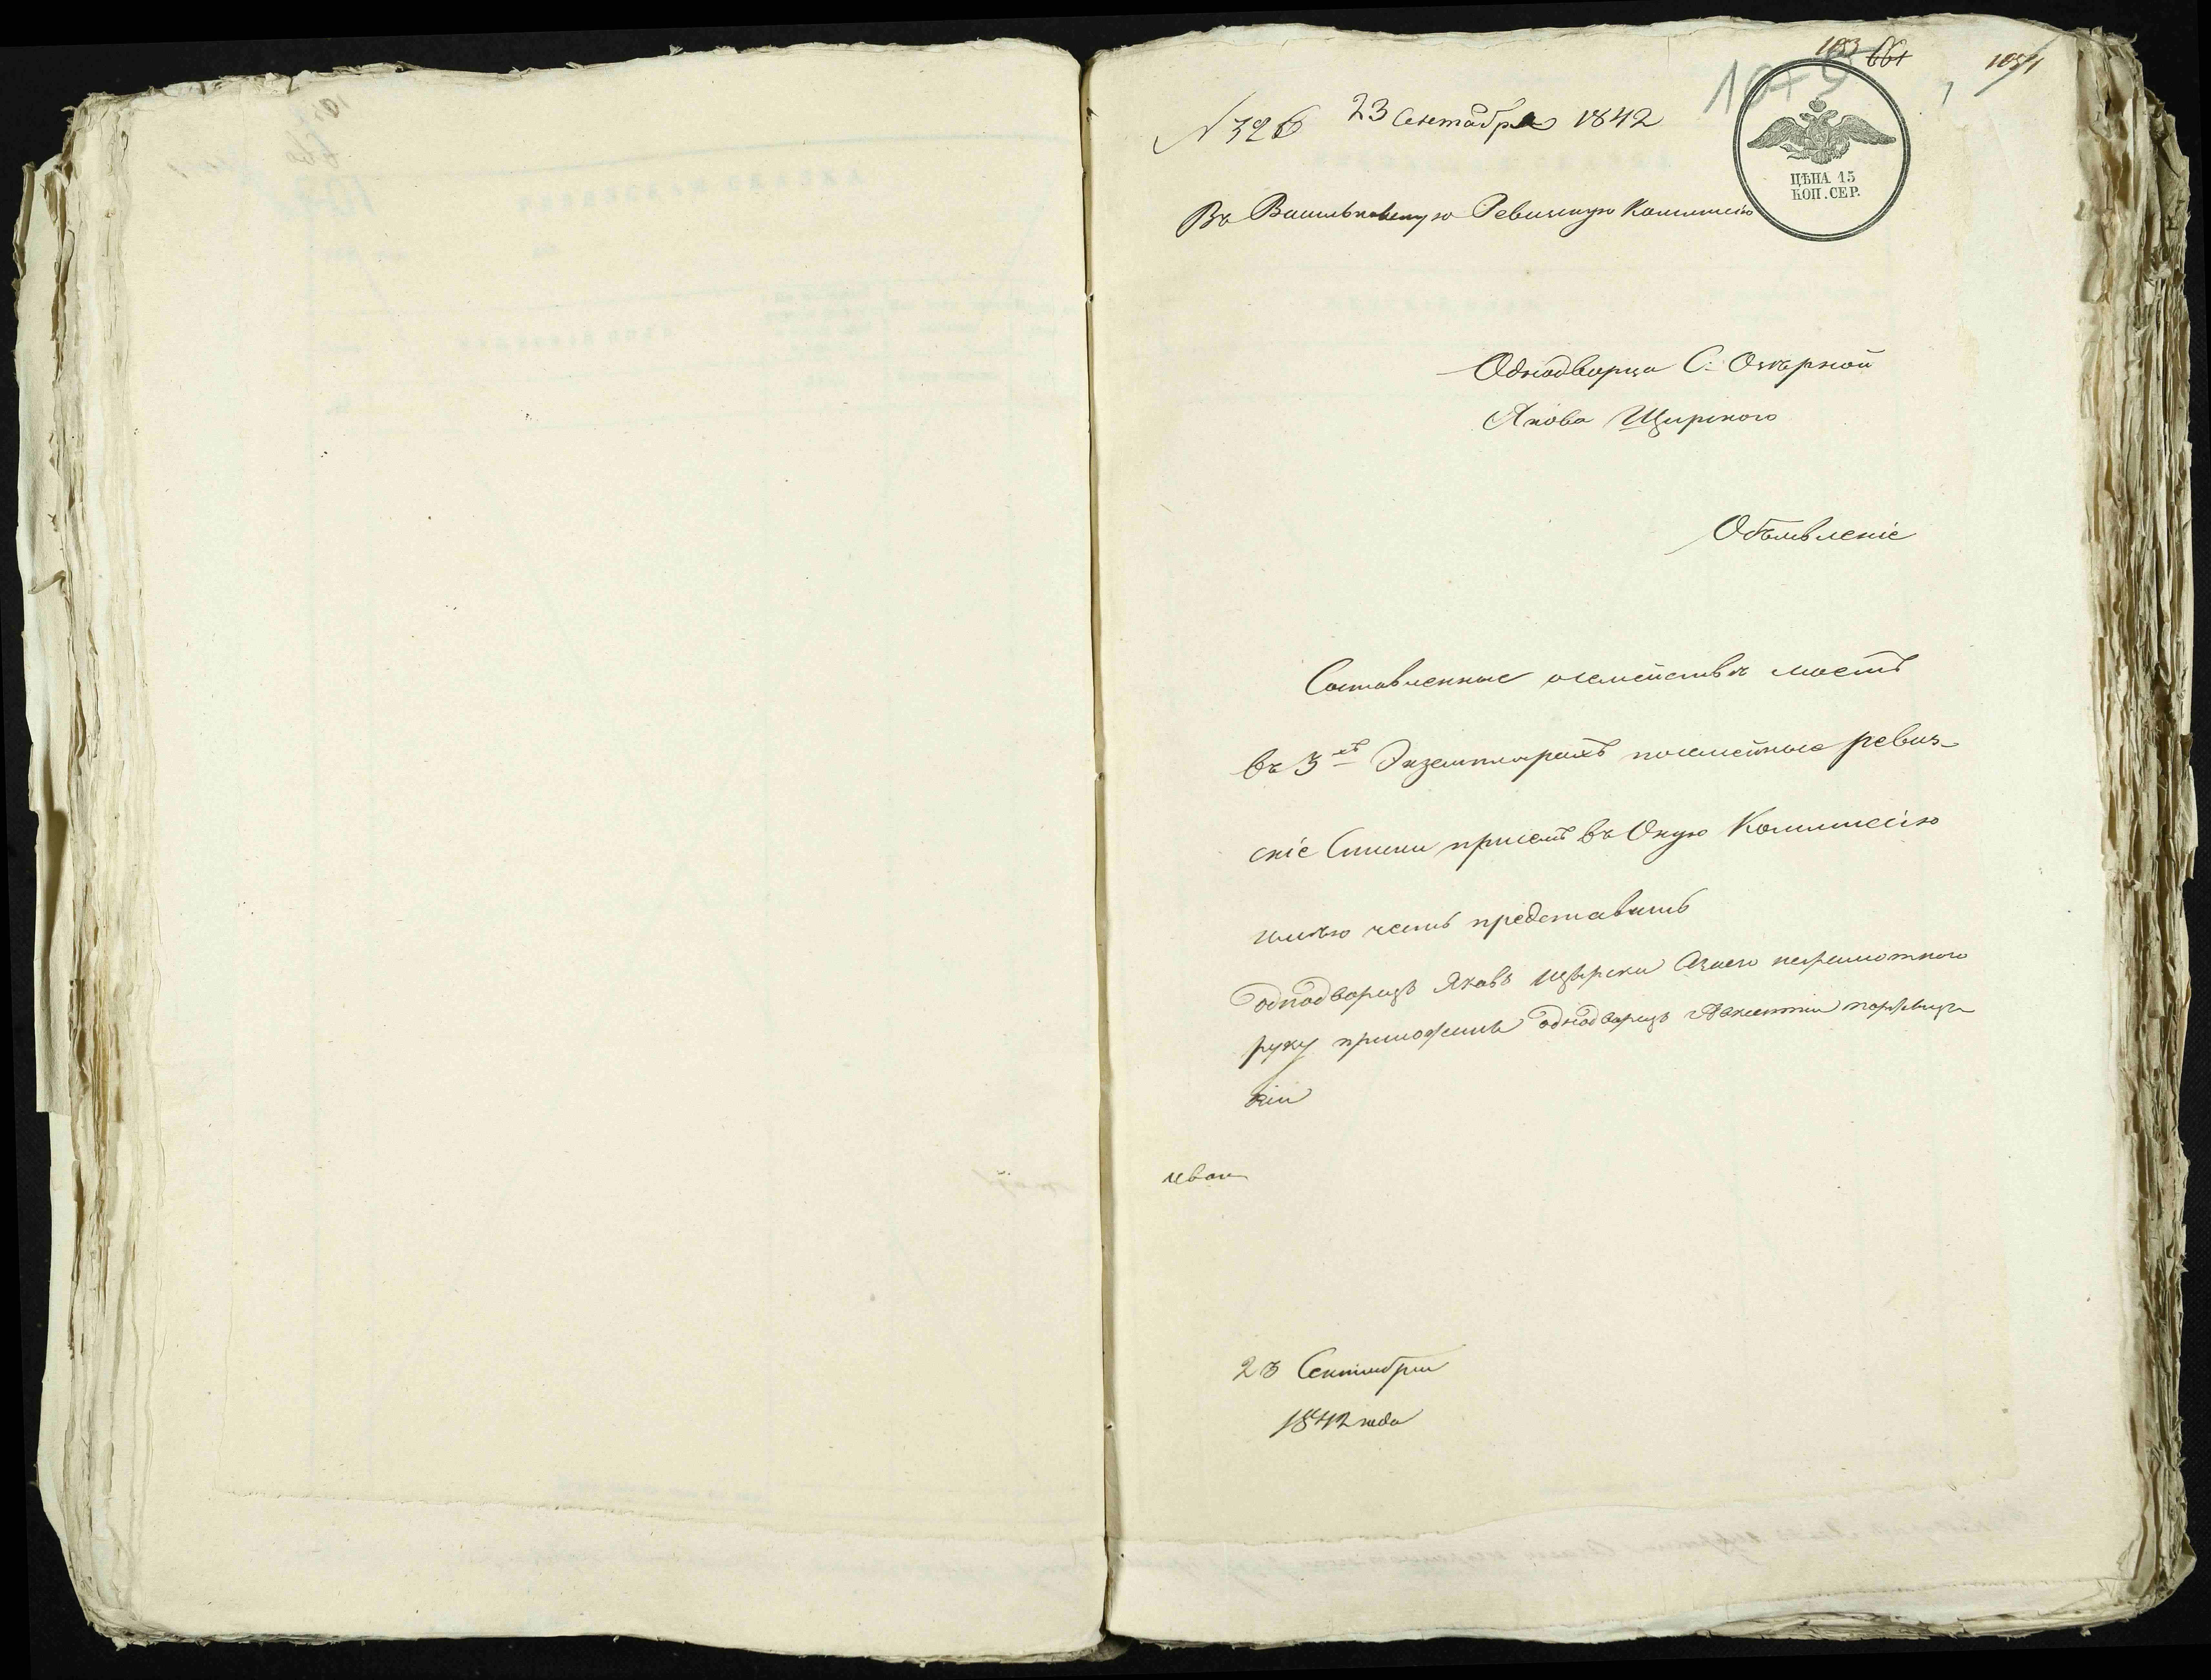 664
1051
1079
№ 326 23 Сентября 1842
ЦѢНА 15
КОП. СЕР.
Въ Васильковскую Ревизкую Коммисію
Однодворца С. Озѣрной
Якова Щирского
Объявленіе
Составленные о семействѣ моемъ
въ 3хъ Экземплярахъ посемейные ревиз-
скіе Списки присемъ въ Оную Коммиссію
имѣю честь представить
однодворецъ Яковъ щирски Азаего неграмотного
руку приложилъ однодворецъ
кій
23 Сентября
1842 года